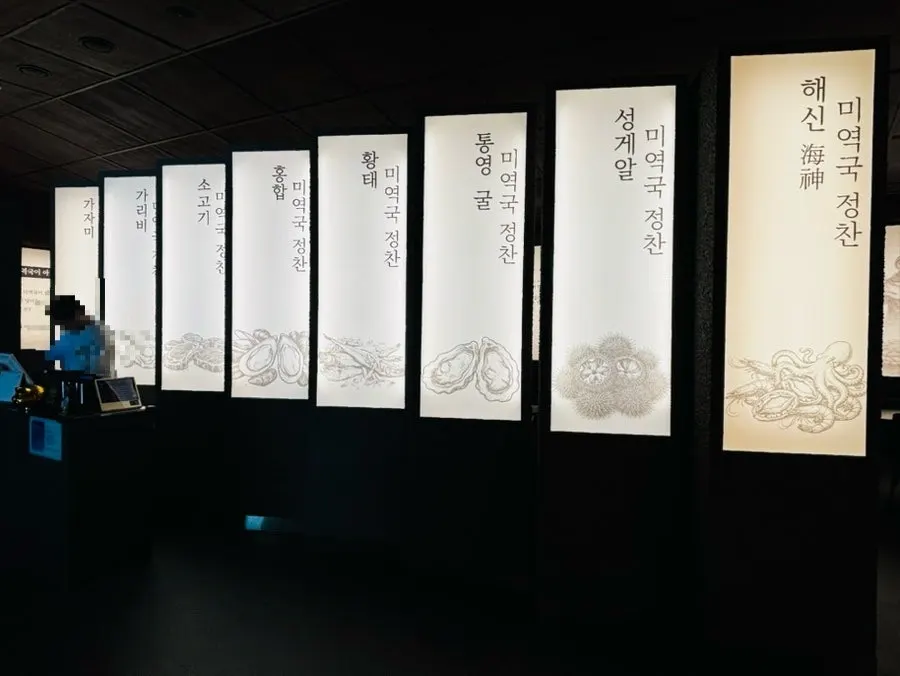 가자미
가리비
미역국 정찬
소고기
미역국 정찬
홍합
미역국 정찬
황태
미역국 정찬
통영 굴
미역국 정찬
성게알
미역국 정찬
해신 海神
미역국 정찬